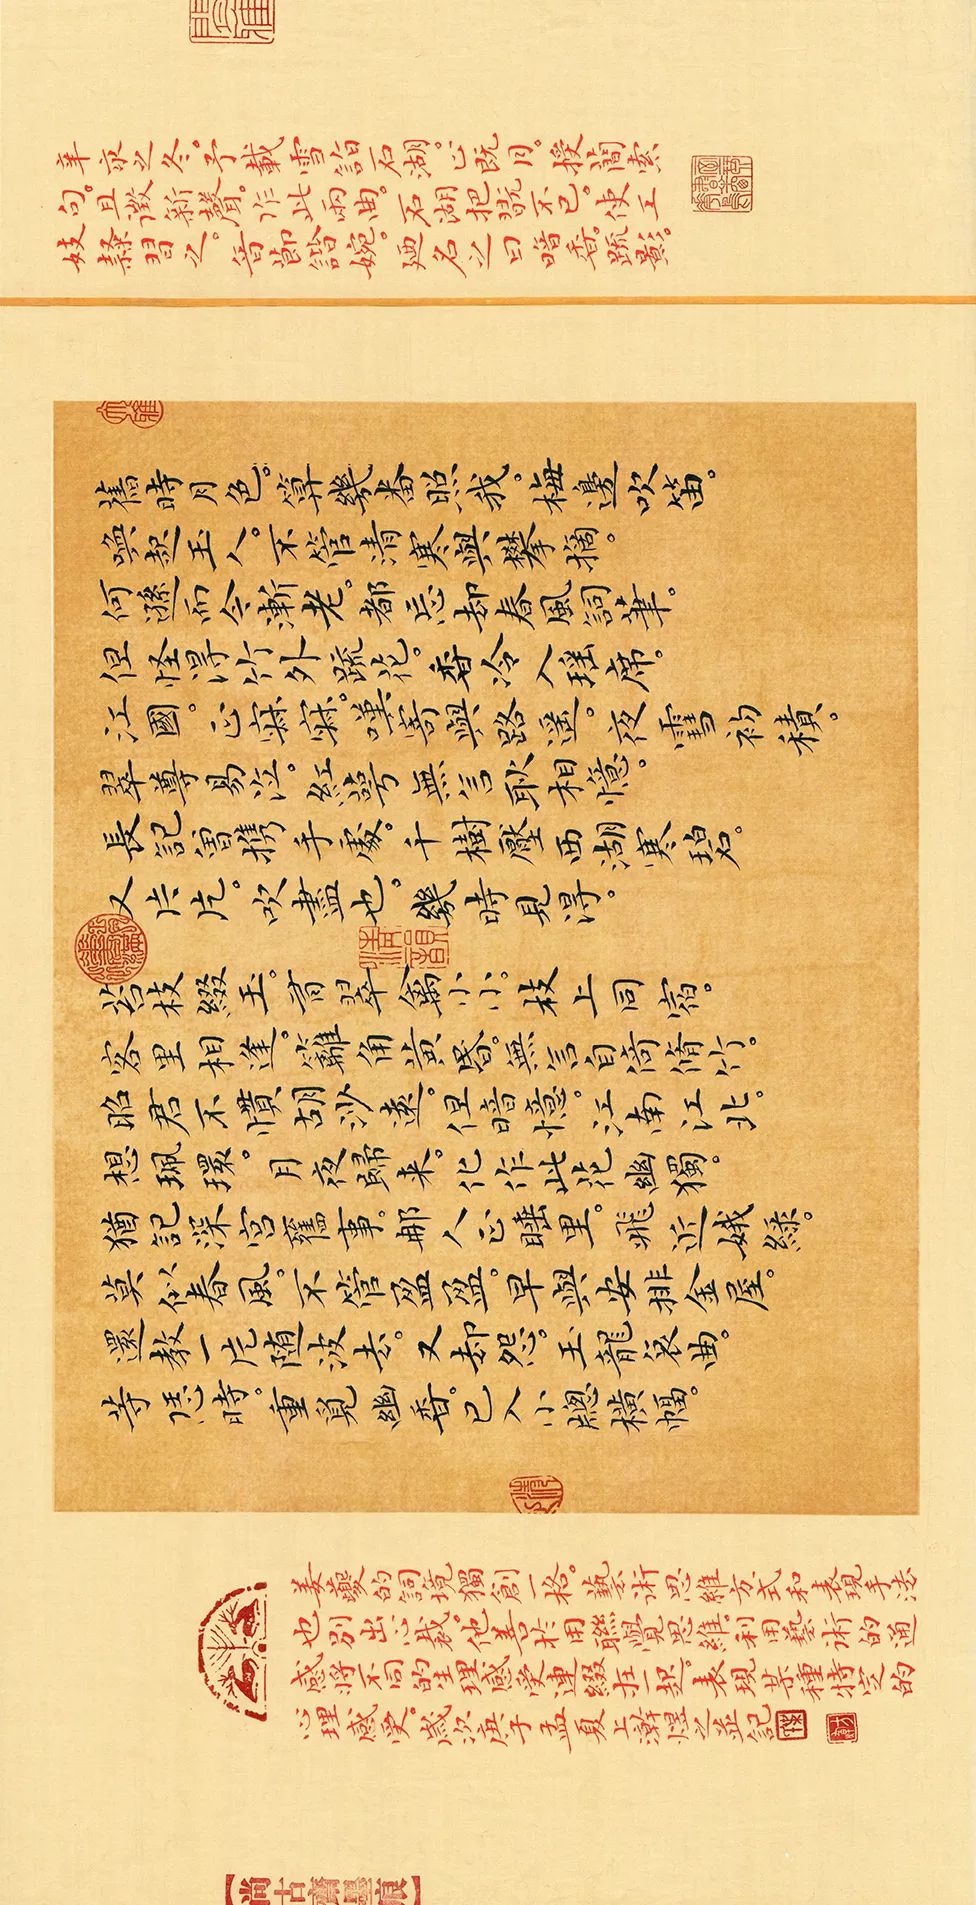 辛亥之冬。予載雪詣石湖。止既月。授簡索
句。且徵新聲。作此兩曲。石湖把翫不已。使工
妓隸習之。音節諧婉。廼名之曰暗香。疏影。
舊時月色。算幾番照我。梅邊吹笛。
喚起玉人。不管清寒與攀摘。
何遜而今漸老。都忘却春風詞筆。
但怪得竹外疏花。香冷入瑤席。
江國。正寂寂。嘆寄與路遙。夜雪初積。
翠尊易泣。紅萼無言耿相憶。
長記曾携手處。千樹壓西湖寒碧。
又片片。吹盡也。幾時見得。
苔枝綴玉。有翠禽小小。枝上同宿。
客里相逢。籬角黃昏。無言自倚脩竹。
昭君不慣胡沙遠。但暗憶。江南江北。
想珮環。月夜歸来。化作此花幽獨。
猶記深宮舊事。那人正睡里。飛近蛾綠。
莫似春風。不管盈盈。早與安排金屋。
還教一片随波去。又却怨。玉龍哀曲。
等恁時。重覓幽香。已入小牕橫幅。
姜夔的詞境獨創一格。藝術思維方式和表現手法
也別出心裁。他善於用聯覺思維。利用藝術的通
感將不同的生理感受連綴在一起。表現某種特定的
心理感受。歲次庚子孟夏上澣煜之並記
【尚古齋墨痕】